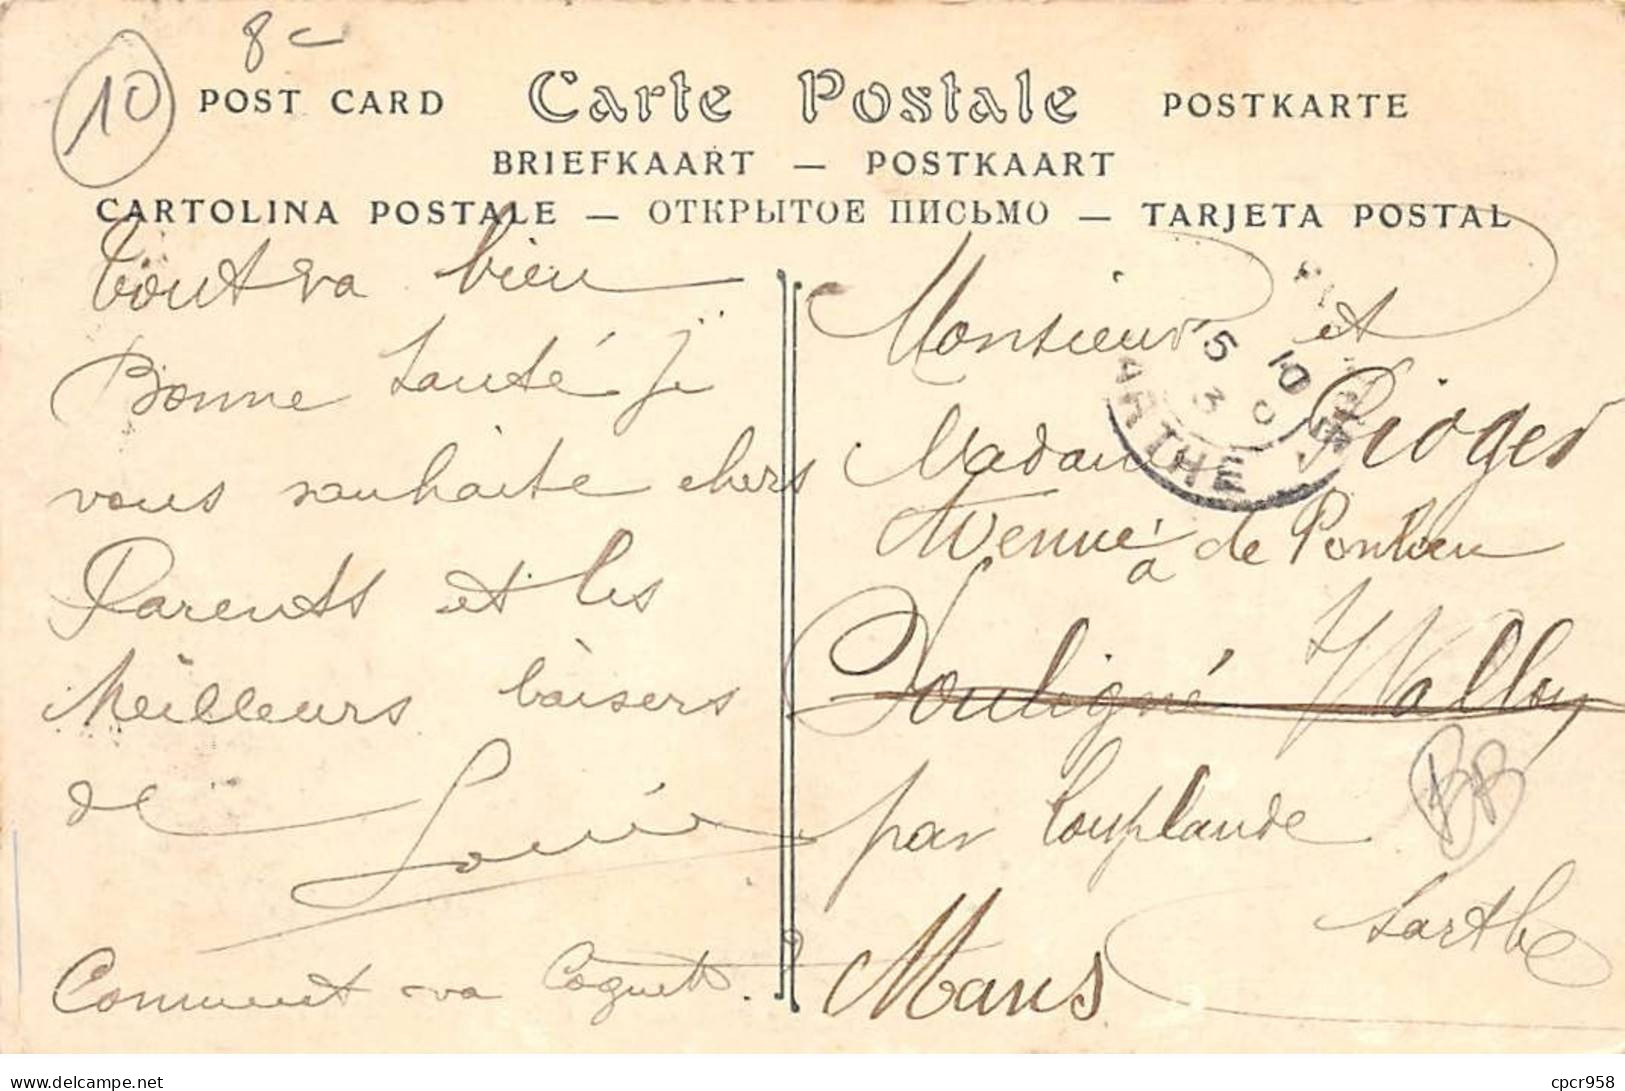 8c
10
POST CARD Carte Postale POSTKARTE
BRIEFKAART — POSTKAART
CARTOLINA POSTALE — ОТКРЫТОЕ ПИСЬМО — TARJETA POSTAL
Tout va bien
Bonne Santé Je
vous souhaite chers
Parents et les
Meilleurs baisers
de Louis
Comment va Coquet.?
Monsieur et
Madame Pioger
Avenue de Pontlieu
à
Souligné /s Vallon
par Louplande
Sarthe
Mans
5 10
3
SARTHE
BB
cpcr958